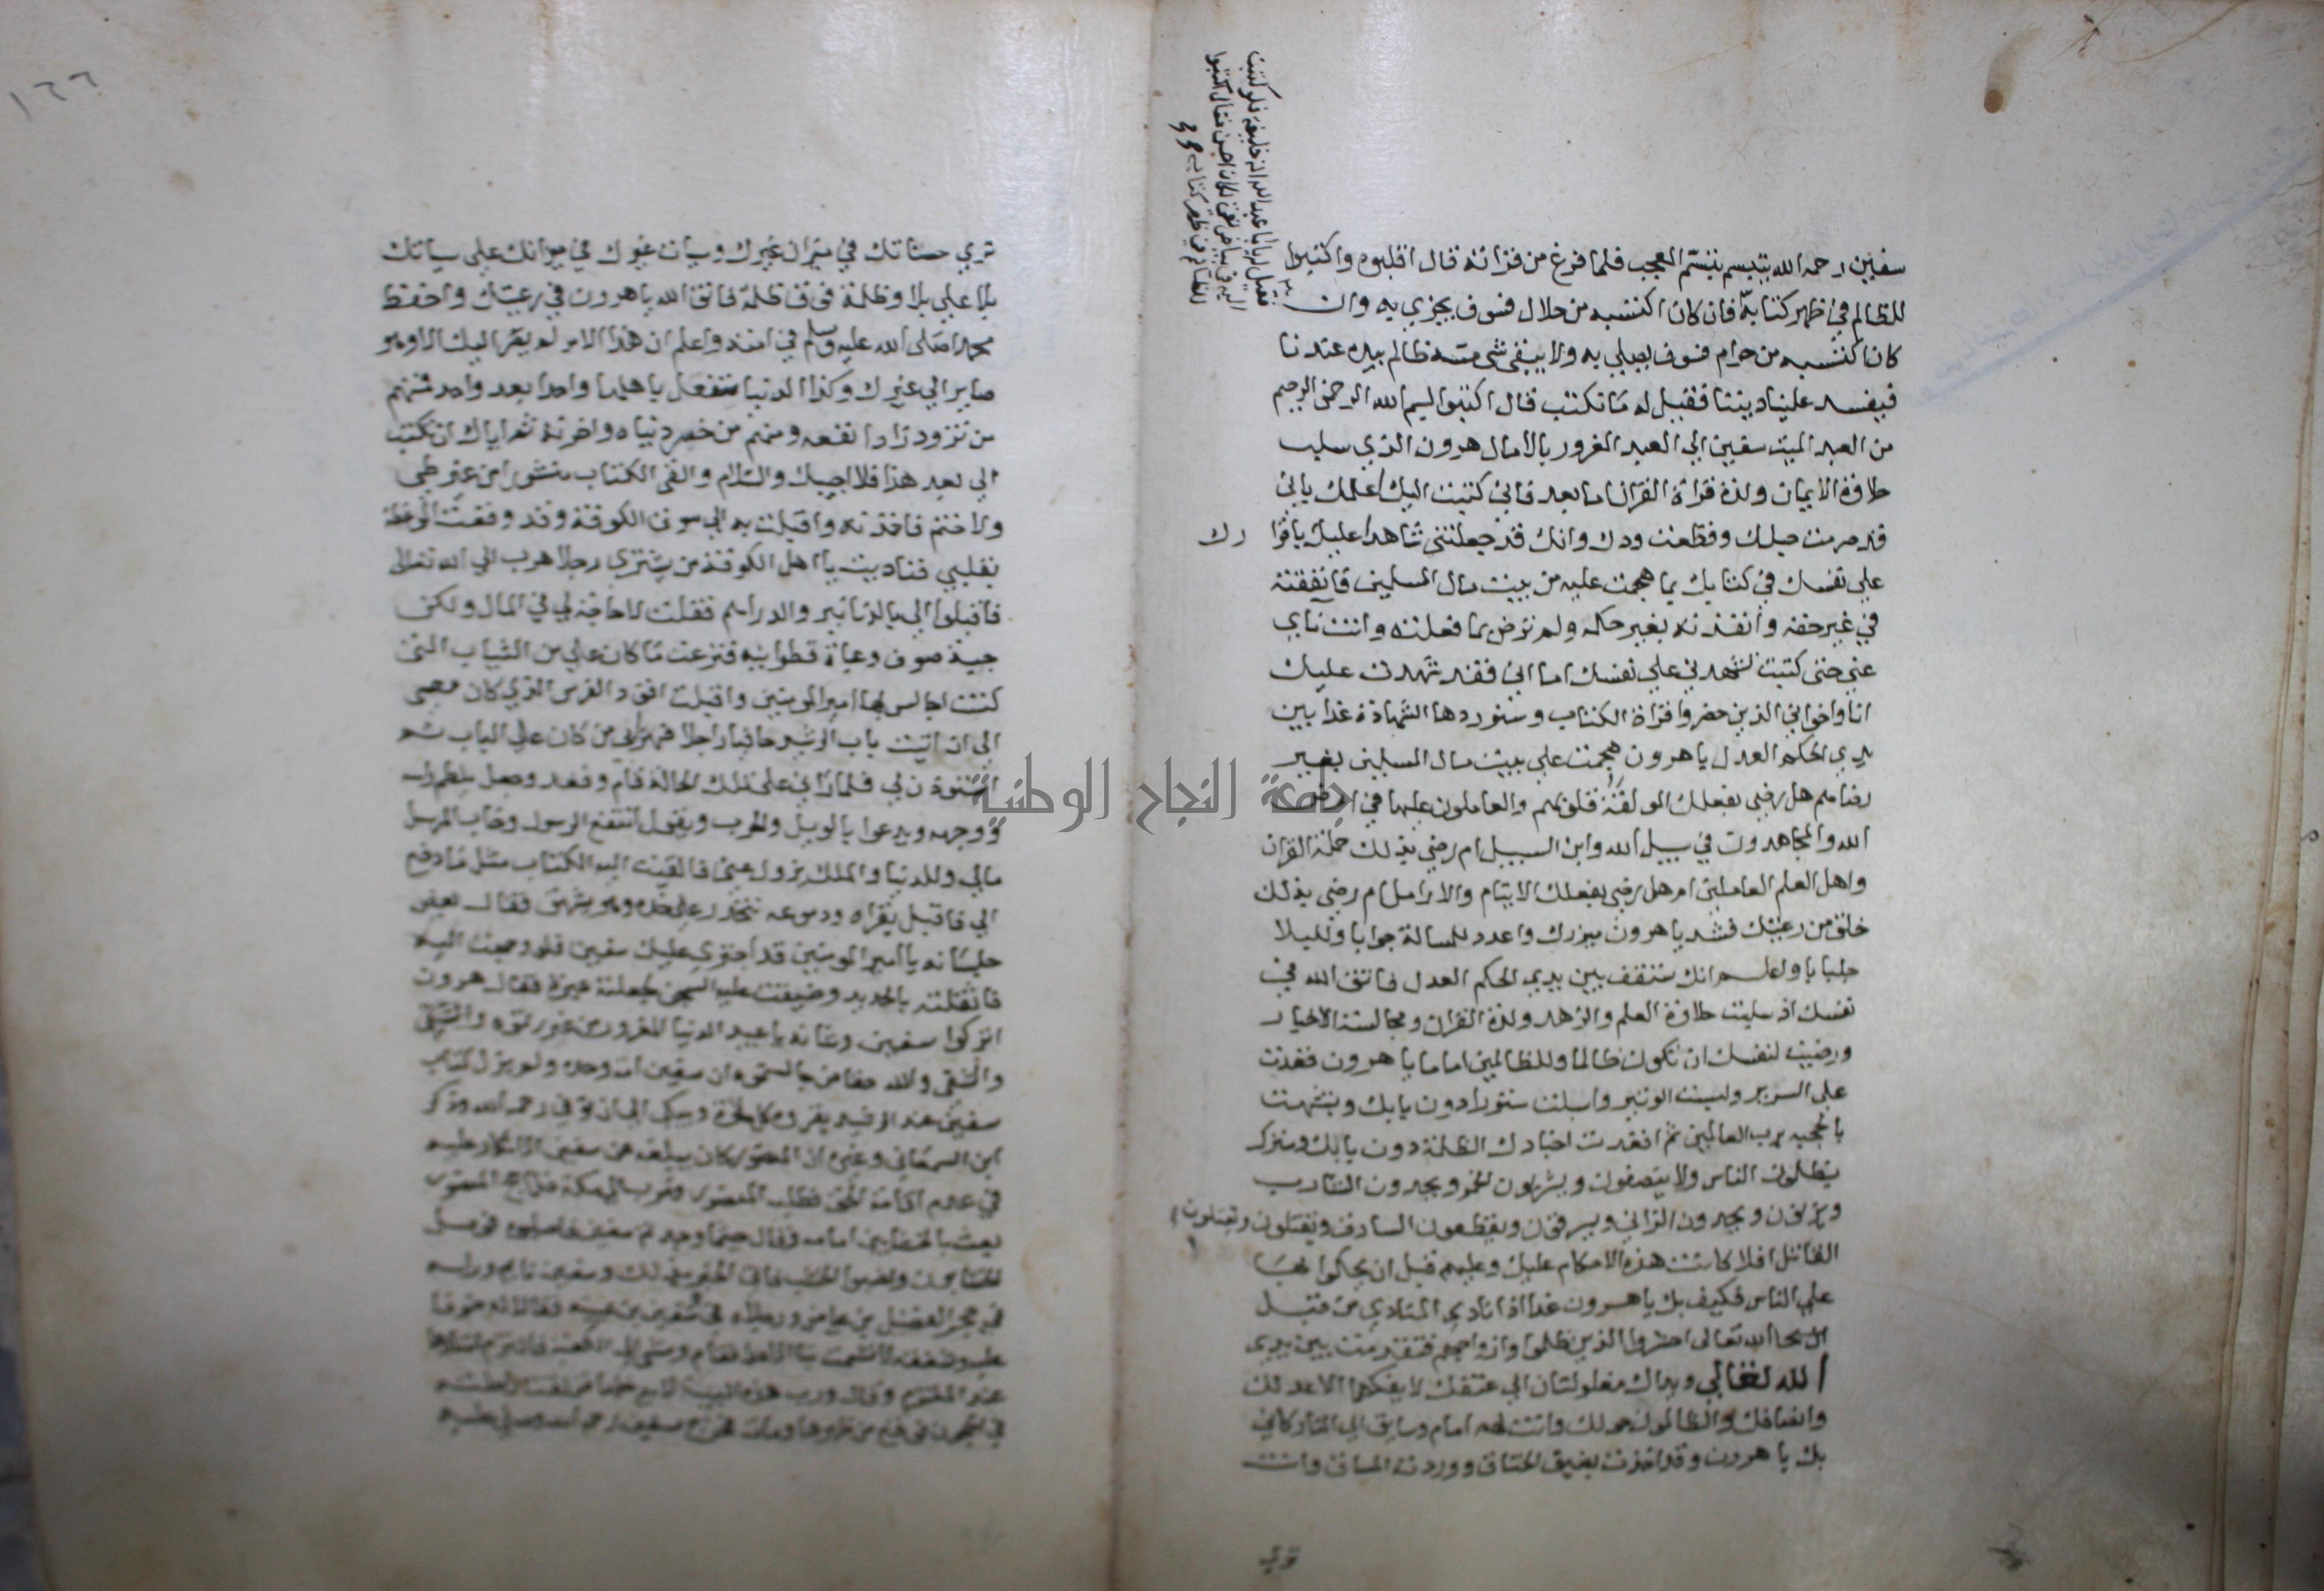 سفين رحمه الله يتبسم تبسّم العجب فلما فرغ من قراته قال اقلبوه واكتبوا
للظالم في ظهر كتابه فان كان اكتسبه من حلال فسوف يجزي به وان
كان اكتسبه من حرام فسوف يصلي به ولا يبقى شي مسه ظالم بيده عندنا
فيفسد علينا ديننا فقيل له ما تكتب قال اكتبوا بسم الله الرحمن الرحيم
من العبد الميت سفين الي العبد المغرور بالامال هرون الذي سلب
حلاوة الايمان ولذة قراة القران اما بعد فاني كتبت اليك اعلمك باني
قد صرمت حبلك وقطعت ودك وانك قد جعلتني شاهدا عليك باقرا
رك
علي نفسك في كتابك بما هجمت عليه من بيت مال المسلمين فانفقته
في غير حقه وانفذته بغير حكمه ولم ترض بما فعلته وانت ناي
عني حتى كتبت تشهدني علي نفسك اما اني فقد شهدت عليك
انا واخواني الذين حضروا قراة الكتاب وسنورد هذا الشهادة غدا بين
يدي الحكم العدل يا هرون هجمت علي بيت مال المسلمين بغير
رضاهم هل رضي بفعلك المولفة قلوبهم والعاملون عليها في ارض
الله والمجاهدون في سبيل الله وابن السبيل ام رضي بذلك حملة القران
واهل العلم العاملين ام هل رضي بفعلك الايتام والارامل ام رضي بذلك
خلق من رعيتك فشد يا هرون ميزرك واعدد للمسالة جوابا وللبلا
جلبابا واعلم انك ستقف بين يدي الحكم العدل فاتق الله في
نفسك اذ سلبت حلاوة العلم والزهد ولذة القران ومجالسة الاخيار
ورضيت لنفسك ان تكون ظالما وللظالمين اماما يا هرون فقعدت
علي السرير ولبست الوثير واسبلت ستورا دون بابك وتشبهت
بالحجبه برب العالمين ثم اقعدت اجنادك الظلمة دون بابك وسترك
يظلمون الناس ولا ينصفون ويشربون الخمر ويحدون الشارب
ويزنون ويحدون الزاني ويسرقون ويقطعون السارق ويقتلون ويقتلون
القاتل افلا كانت هذه الاحكام عليك وعليهم قبل ان يحكموا بها
علي الناس فكيف بك يا هرون غدا اذا نادي المنادي من قبل
الله تعالى احشروا الذين ظلموا وازواجهم فتقدمت بين يدي
الله تعالي ويداك مغلولتان الي عنقك لا يفكهما الا عدلك
وانصافك والظالمون حولك وانت لهم امام وسايق الي النار كاني
بك يا هرون وقد اخذت بضيق الخناق ووردت المساق وانت
تري
فقيل له يا ابا عبد الله انه خليفة فلو كتبت
اليه في بياض نقي لكان احسن فقال اكتبوا
للظالم في ظهر كتابه
١٦٦
تري حسناتك في ميزان غيرك وسيات غيرك في ميزانك علي سياتك
بلا علي بلا وظلمة فوق ظلمة فاتق الله يا هرون في رعيتك واحفظ
محمدا صلى الله عليه وسلم في امته واعلم ان هذا الامر لم يصر اليك الا وهو
صاير الي غيرك وكذا الدنيا تفعل باهلها واحدا بعد واحد فمنهم
من تزود زادا نفعه ومنهم من خسر دنياه واخرته ثم اياك ان تكتب
الي بعد هذا فلا اجيبك والسلام والقي الكتاب منشورا من غير طي
ولا ختم فاخذته واقبلت به الي سوق الكوفة وقد وقعت الموعظة
بقلبي فناديت يا اهل الكوفة من يشتري رجلا هرب الي الله تعالى
فاقبلوا الي بالدنانير والدراهم فقلت لا حاجة لي في المال ولكن
جبة صوف وعباة قطوانيه فنزعت ما كان علي من الثياب التي
كنت اجالس بها امير المومنين واقبلت اقود الفرس الذي كان معي
الي ان اتيت باب الرشيد حافيا راجلا فهزابي من كان علي الباب ثم
استوذن لي فلما راني علي تلك الحالة قام وقعد وجعل يلطم راسه
ووجهه ويدعوا بالويل والحرب ويقول انتفع الرسول وخاب المرسل
مالي وللدنيا والملك يزول عني فالقيت اليه الكتاب مثل ما دفع
الي فاقبل يقراه ودموعه تتحدر علي خده وهو يشهق فقال بعض
جلسايه يا امير المومنين قد اجتري عليك سفين فلو وجهت اليه
فاثقلته بالحديد وضيقت عليه السجن لجعلته عبرة فقال هرون
اتركوا سفين وشانه يا عبيد الدنيا المغرور من غررتموه والشقي
والشقي والله حقا من جالستموه ان سفين امة وحده ولم يزل كتاب
سفين عند الرشيد يقروه كل صلاة ويبكي الي ان توفي رحمه الله وذكر
ابن السمعاني وغيره ان المنصور كان يبلغه عن سفين الانكار عليه
في عدم اقامة الحق فطلبه المنصور وهرب الي مكة فلما حج المنصور
بعث بالخشابين امامه وقال حيثما وجدتم سفين فاصلبوه فوصل
الخشابون ونصبوا الخشب فاتي الخبر بذلك وسفين نايم وراسه
في حجر الفضيل بن عياض ورجلاه في حجر سفين بن عيينه فقالا له خوفا